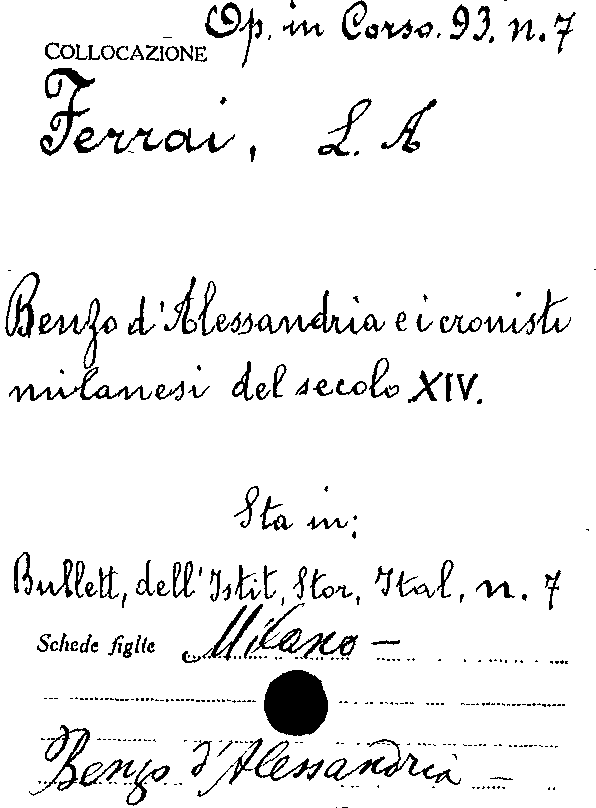 Op. in Corso. 93. n. 7
COLLOCAZIONE
Ferrai, L. A
Benzo d'Alessandria e i cronisti
milanesi del secolo XIV.
Sta in:
Bullett, dell'Istit, Stor, Ital, n. 7
Schede figlie Milano —
Benzo d'Alessandria —